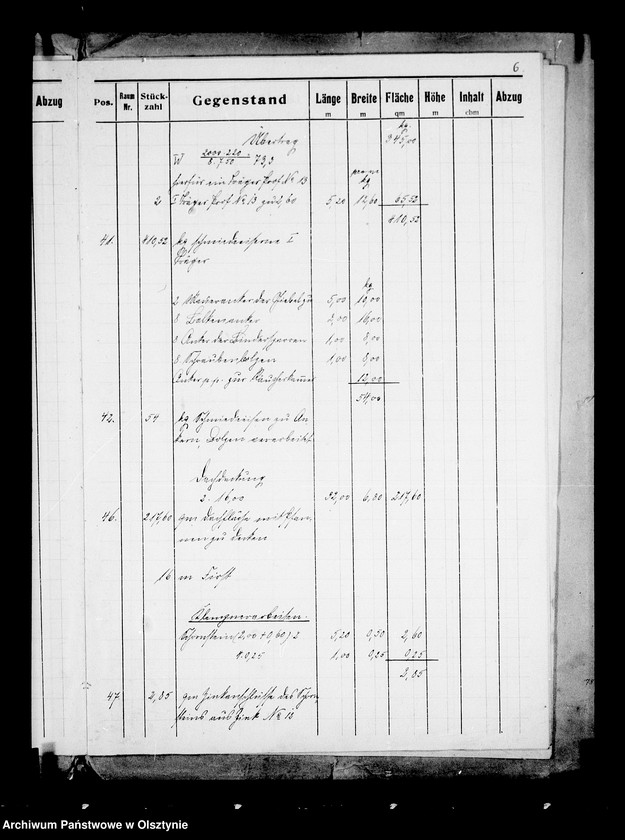 6
Abzug
Pos. Raum Nr. Stück-zahl Gegenstand Länge m Breite m Fläche qm Höhe m Inhalt cbm Abzug
Übertrag kg 345,00
W 2000·220 / 8·750 = 73,3
ein Träger Prof. No 13 pro m kg
2 I Träger Prof. No 13 zu 2,60 5,20 12,60 65,52
410,52
41. 410,52 kg schmiedeeiserne I
Träger
kg
2 Maueranker der Giebel zu 5,00 10,00
8 Balkenanker 2,00 16,00
8 Anker der Bindersparren 1,00 8,00
8 Schraubenbolzen 1,00 8,00
Anker p.p. zur Räucherkammer 12,00
54,00
42. 54 kg Schmiedeeisen zu An-
kern, Bolzen verarbeitet
Dachdeckung
2·16,00 32,00 6,80 217,60
46. 217,60 qm Dachfläche mit Pfan-
nen zu decken
16 m First
Klempnerarbeiten.
Schornstein (2,00 + 0,60) 2 5,20 0,50 2,60
4·0,25 1,00 0,25 0,25
2,85
47 2,85 qm Zinkanschlüsse des Schorn-
steins aus Zink No 13
Archiwum Państwowe w Olsztynie